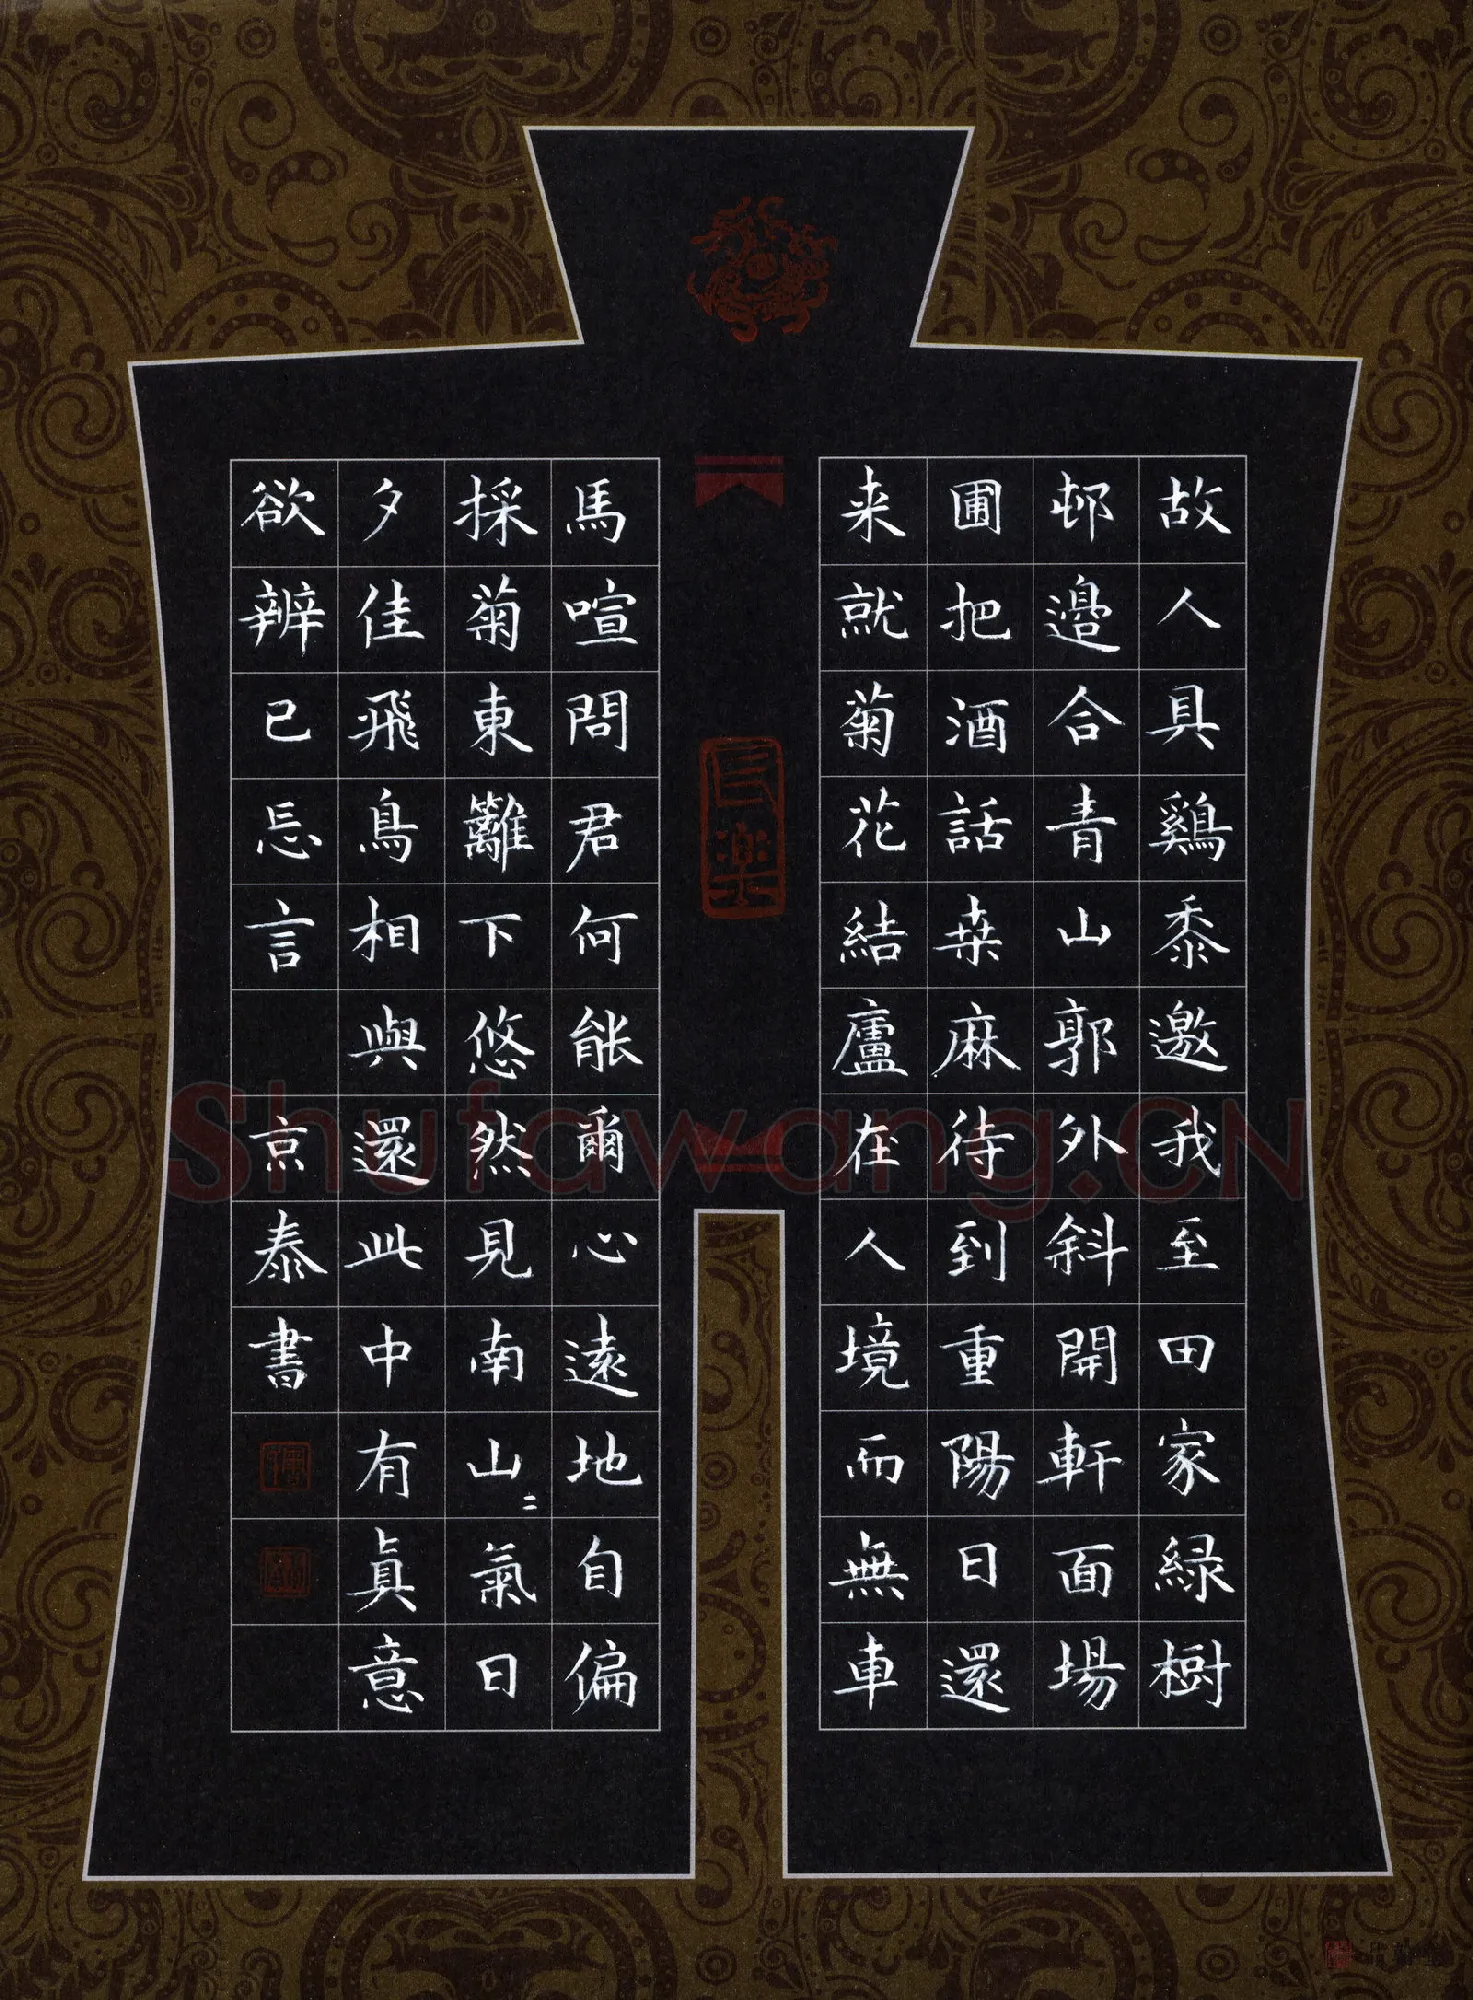 故人具鷄黍邀我至田家緑樹
邨邉合青山郭外斜開軒面場
圃把酒話桒麻待到重陽日還
来就菊花結廬在人境而無車
馬喧問君何能爾心遠地自偏
採菊東籬下悠然見南山〻氣日
夕佳飛鳥相與還此中有真意
欲辨已忘言 京泰書
Shufawang.CN